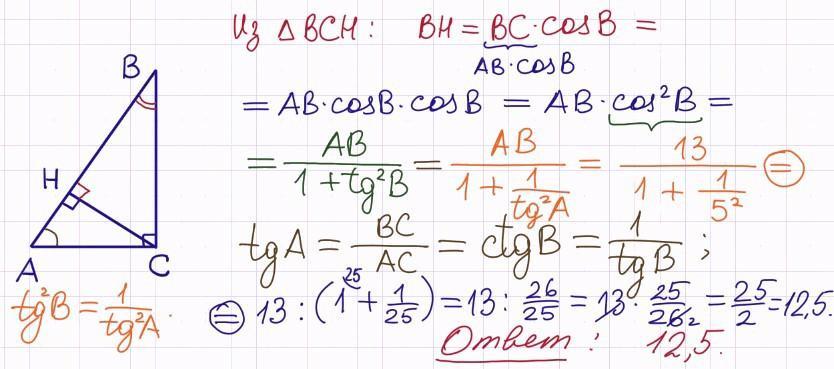 Из △ BCH: BH = BC·cosB =
AB·cosB
= AB·cosB·cosB = AB·cos²B =
= AB/(1+tg²B) = AB/(1 + 1/tg²A) = 13/(1 + 1/5²) =
B
H
A
C
tgA = BC/AC = ctgB = 1/tgB ;
tg²B = 1/tg²A.
= 13 : (1²⁵ + 1/25) = 13 : 26/25 = 13 · 25/26₂ = 25/2 = 12,5.
Ответ : 12,5.